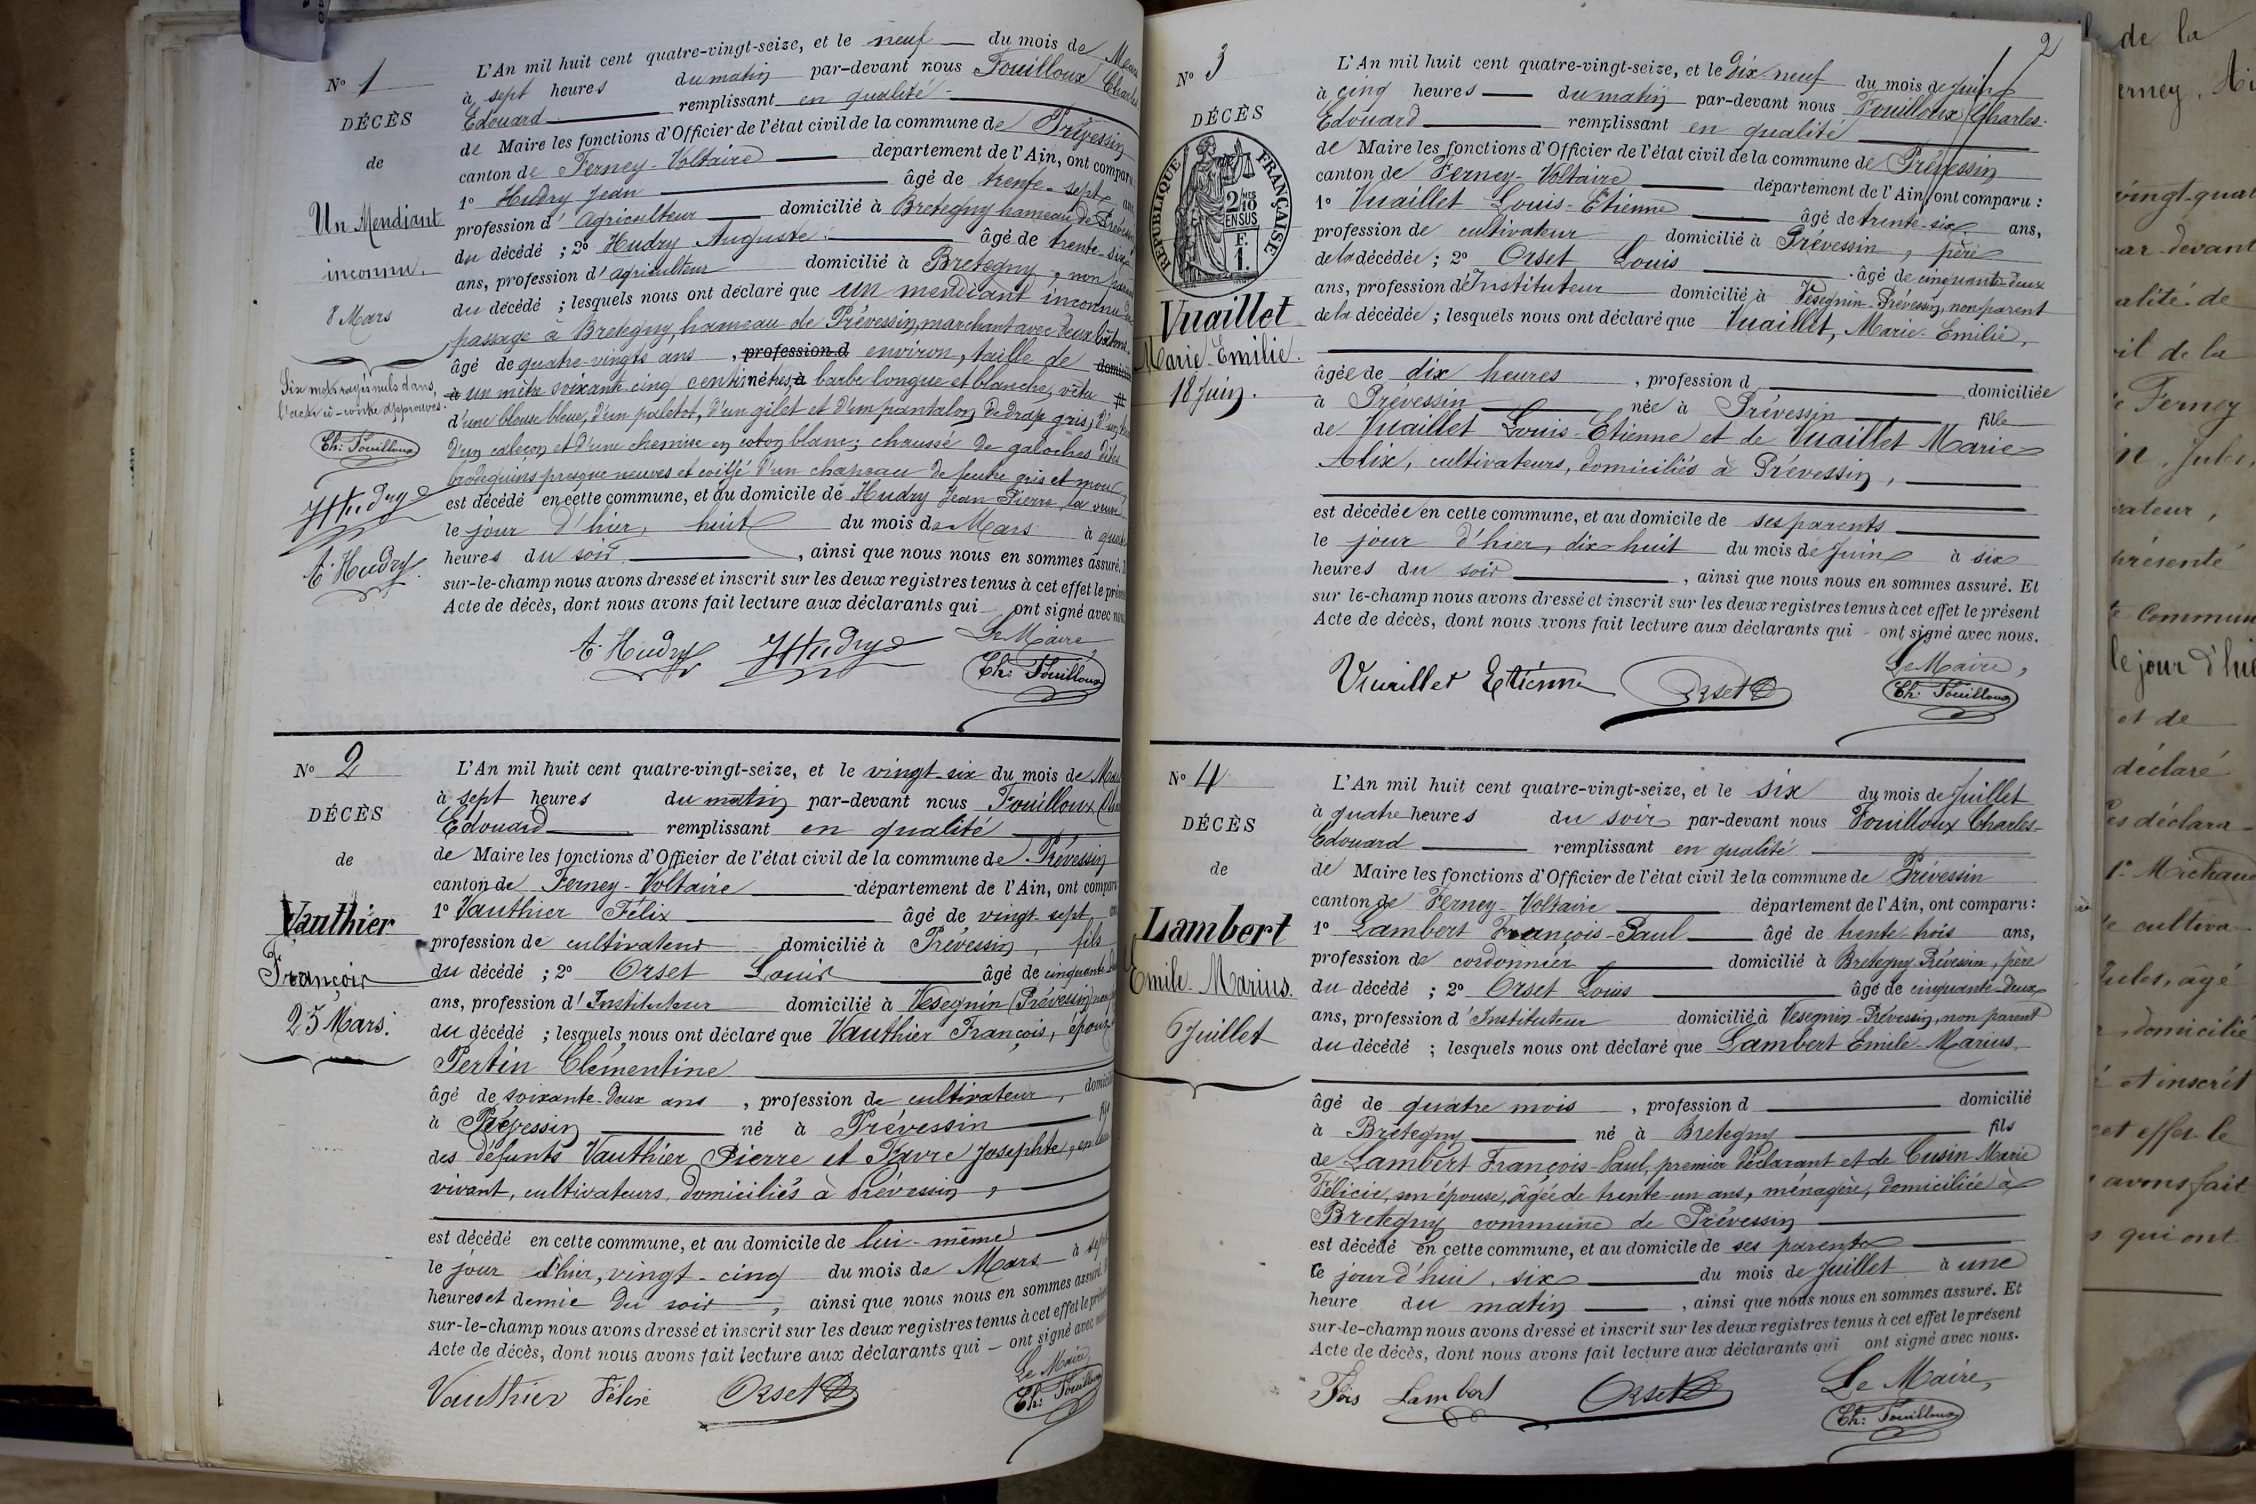 No 1
DÉCÈS
de
Un Mendiant
inconnu.
8 Mars
Six mots rayés nuls dans
l'acte ci-contre approuvés.
Ch: Fouilloux
JHudry
A. Hudry
L'An mil huit cent quatre-vingt-seize, et le neuf du mois de Mars
à sept heures du matin par-devant nous Fouilloux Charles
Edouard remplissant en qualité
de Maire les fonctions d'Officier de l'état civil de la commune de Prévessin
canton de Ferney-Voltaire département de l'Ain, ont comparu
1o Hudry Jean âgé de trente-sept ans
profession d'agriculteur domicilié à Bretegny hameau de Prévessin
du décédé ; 2o Hudry Auguste âgé de trente-six
ans, profession d'agriculteur domicilié à Bretegny, non parent
du décédé ; lesquels nous ont déclaré que un mendiant inconnu de
passage à Bretegny, hameau de Prévessin, marchant avec deux bâtons
âgé de quatre-vingts ans, profession d environ, taille de domicilié
à un mètre soixante cinq centimètres, à barbe longue et blanche, vêtu
d'une blouse bleue, d'un paletot, d'un gilet et d'un pantalon de drap gris,
d'un caleçon et d'une chemise en coton blanc; chaussé de galoches dites
brodequins presque neuves et coiffé d'un chapeau de feutre gris et mou,
est décédé en cette commune, et au domicile de Hudry Jean Pierre, la veuve
le jour d'hier, huit du mois de Mars à
heures du soir, ainsi que nous nous en sommes assuré.
sur-le-champ nous avons dressé et inscrit sur les deux registres tenus à cet effet le présent
Acte de décès, dont nous avons fait lecture aux déclarants qui ont signé avec nous
A. Hudry JHudry Le Maire,
Ch: Fouilloux
No 2
DÉCÈS
de
Vauthier
François
25 Mars.
L'An mil huit cent quatre-vingt-seize, et le vingt-six du mois de Mars
à sept heures du matin par-devant nous Fouilloux Charles
Edouard remplissant en qualité
de Maire les fonctions d'Officier de l'état civil de la commune de Prévessin
canton de Ferney-Voltaire département de l'Ain, ont comparu
1o Vauthier Félix âgé de vingt-sept ans
profession de cultivateur domicilié à Prévessin, fils
du décédé ; 2o Orset Louis âgé de cinquante-deux
ans, profession d'Instituteur domicilié à Vesegnin (Prévessin) non
du décédé ; lesquels nous ont déclaré que Vauthier François, époux
Pertin Clémentine
âgé de soixante-deux ans, profession de cultivateur, domicilié
à Prévessin né à Prévessin fils
des défunts Vauthier Pierre et Favre Josephte, en leur
vivant, cultivateurs, domiciliés à Prévessin,
est décédé en cette commune, et au domicile de lui-même
le jour d'hier, vingt-cinq du mois de Mars à sept
heures et demie du soir, ainsi que nous nous en sommes assuré.
sur-le-champ nous avons dressé et inscrit sur les deux registres tenus à cet effet le présent
Acte de décès, dont nous avons fait lecture aux déclarants qui ont signé avec nous
Vauthier Félix Orset Le Maire,
Ch: Fouilloux
2
No 3
DÉCÈS
RÉPUBLIQUE FRANÇAISE
2/10 MES
EN SUS
F.
1.
Vuaillet
Marie-Emilie.
18 Juin.
L'An mil huit cent quatre-vingt-seize, et le Dix-neuf du mois de Juin
à cinq heures du matin par-devant nous Fouilloux Charles-
Edouard remplissant en qualité
de Maire les fonctions d'Officier de l'état civil de la commune de Prévessin
canton de Ferney-Voltaire département de l'Ain, ont comparu :
1o Vuaillet Louis-Etienne âgé de trente-six ans,
profession de cultivateur domicilié à Prévessin, père
de la décédée ; 2o Orset Louis âgé de cinquante-deux
ans, profession d'Instituteur domicilié à Vesegnin-Prévessin, non parent
de la décédée ; lesquels nous ont déclaré que Vuaillet, Marie-Emilie,
âgée de dix heures, profession d domiciliée
à Prévessin née à Prévessin fille
de Vuaillet Louis-Etienne et de Vuaillet Marie
Alix, cultivateurs, domiciliés à Prévessin,
est décédée en cette commune, et au domicile de ses parents
le jour d'hier, dix-huit du mois de Juin à six
heures du soir, ainsi que nous nous en sommes assuré. Et
sur le-champ nous avons dressé et inscrit sur les deux registres tenus à cet effet le présent
Acte de décès, dont nous avons fait lecture aux déclarants qui ont signé avec nous.
Vuaillet Etienne Orset Le Maire,
Ch: Fouilloux
No 4
DÉCÈS
de
Lambert
Emile-Marius.
6 Juillet
L'An mil huit cent quatre-vingt-seize, et le six du mois de Juillet
à quatre heures du soir par-devant nous Fouilloux Charles-
Edouard remplissant en qualité
de Maire les fonctions d'Officier de l'état civil de la commune de Prévessin
canton de Ferney-Voltaire département de l'Ain, ont comparu :
1o Lambert François-Paul âgé de trente trois ans,
profession de cordonnier domicilié à Bretegny Prévessin, père
du décédé ; 2o Orset Louis âgé de cinquante-deux
ans, profession d'Instituteur domicilié à Vesegnin-Prévessin, non parent
du décédé ; lesquels nous ont déclaré que Lambert Emile-Marius
âgé de quatre mois, profession d domicilié
à Bretegny né à Bretegny fils
de Lambert François-Paul, premier déclarant et de Cusin Marie
Félicie, son épouse, âgée de trente-un ans, ménagère, domiciliée à
Bretegny commune de Prévessin
est décédé en cette commune, et au domicile de ses parents
le jour d'hui, six du mois de Juillet à une
heure du matin, ainsi que nous nous en sommes assuré. Et
sur-le-champ nous avons dressé et inscrit sur les deux registres tenus à cet effet le présent
Acte de décès, dont nous avons fait lecture aux déclarants qui ont signé avec nous.
Fois Lambert Orset Le Maire,
Ch: Fouilloux
de la
erney.
vingt-quat
par-devant
alité de
vil de la
Ferney
Jules
vateur,
présenté
commun
le jour d'hui
et de
déclaré
es déclara-
1o Michaud
cultiva-
Jules, âgé
domicilié
et inscrit
cet effet le
avons fait
qui ont